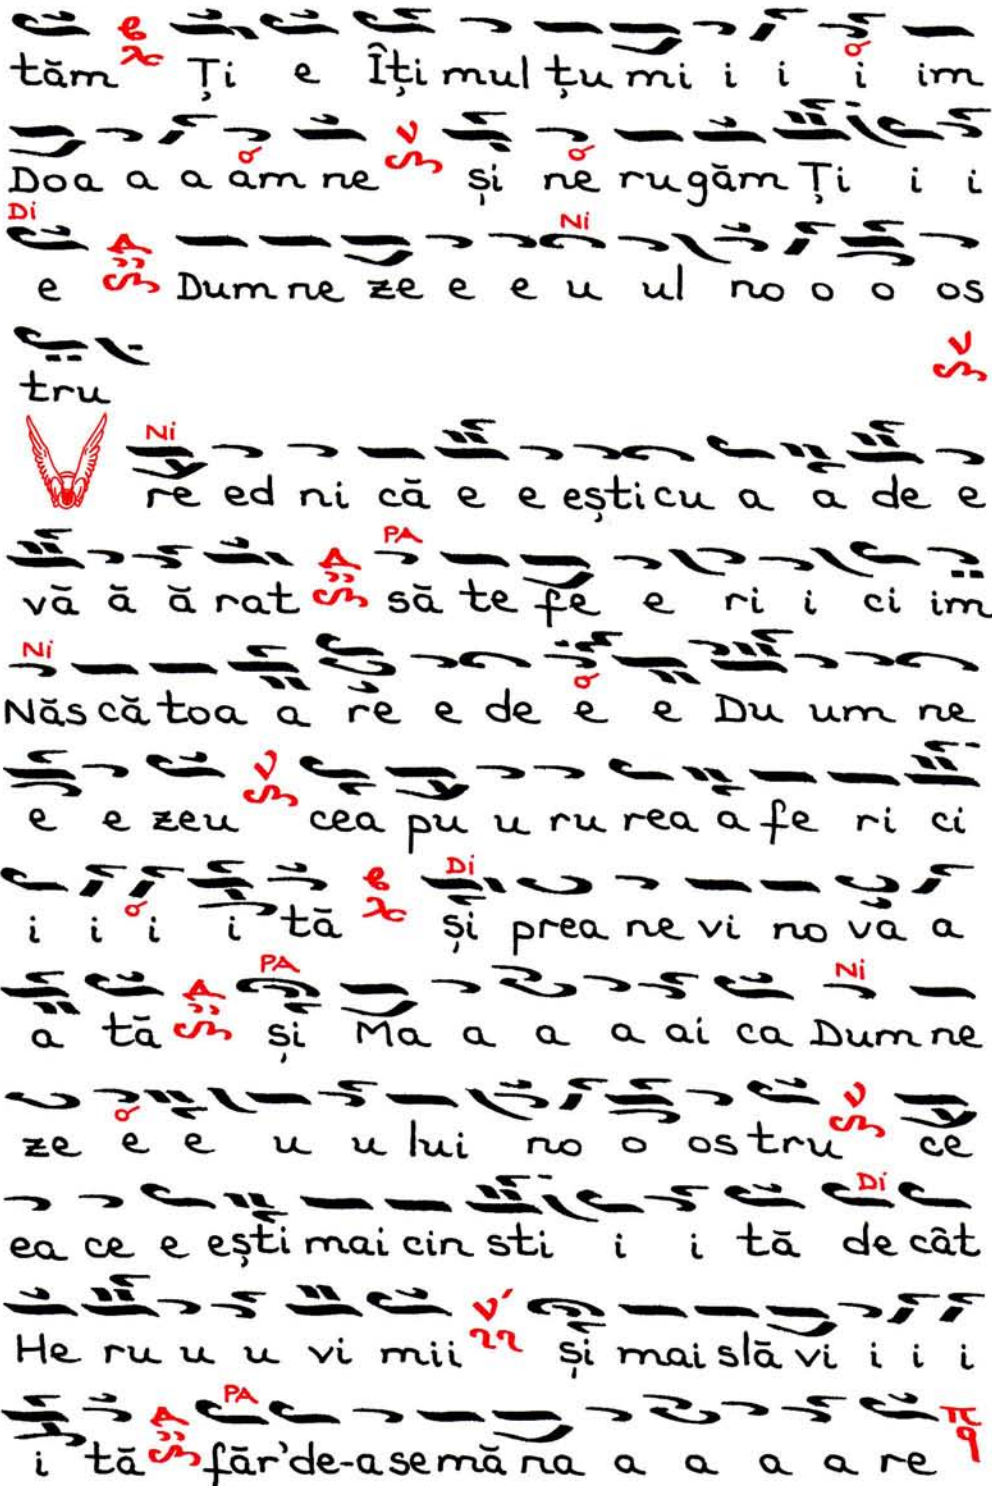 tăm Ți e Îți mul țu mi i i i im
Doa a a am ne și ne rugăm Ți i i
Di
Ni
e Dum ne ze e e u ul no o o os
tru
Ni
V re ed ni că e e ești cu a a de e
PA
vă ă ă rat să te fe e ri i ci im
Ni
Năs că toa a re e de e e Du um ne
e e zeu cea pu u ru rea a fe ri ci
Di
i i i i tă și prea ne vi no vă a
PA
Ni
a tă și Ma a a a ai ca Dum ne
ze e e u u lui no o os tru ce
Di
ea ce e ești mai cin sti i i tă de cât
He ru u u vi mii și mai slă vi i i i
PA
i tă făr'de-a se mă na a a a a re